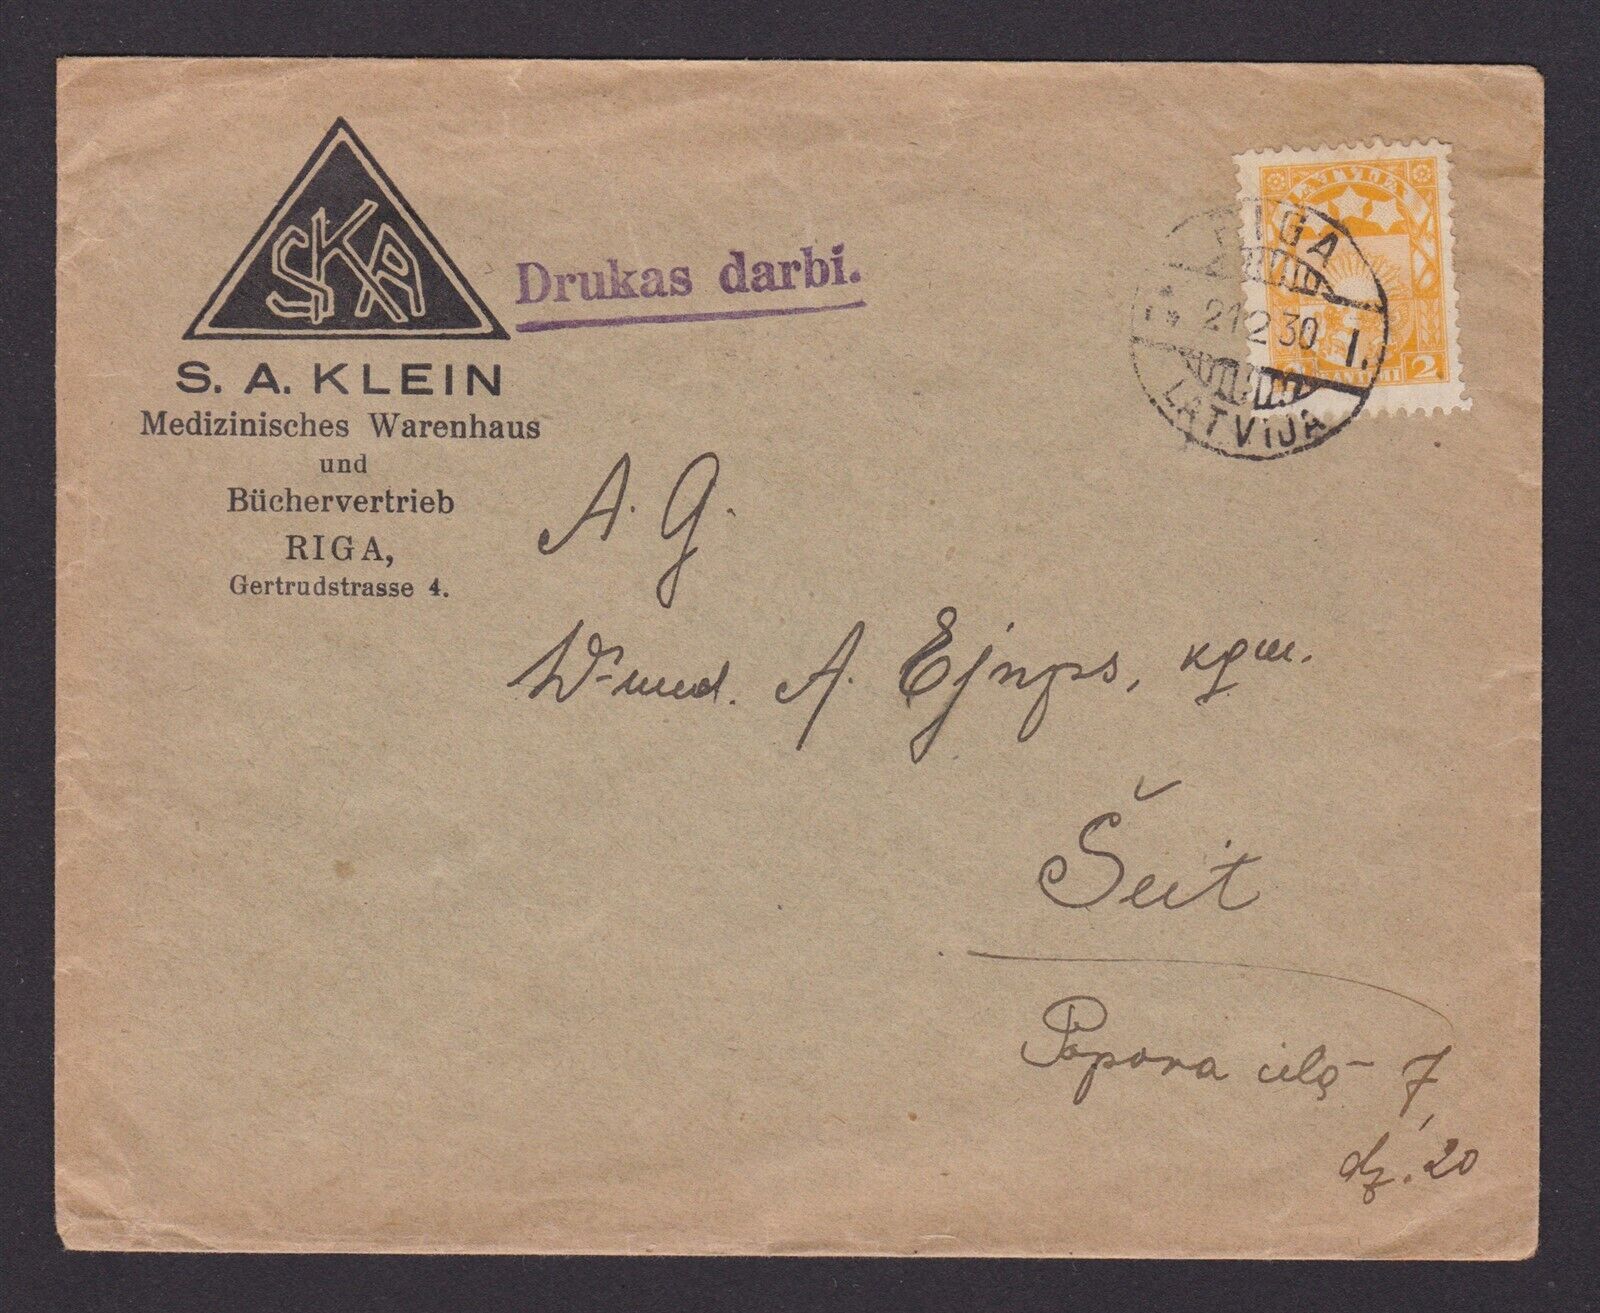 SKA
S. A. KLEIN
Medizinisches Warenhaus
und
Büchervertrieb
RIGA,
Gertrudstrasse 4.
Drukas darbi.
LATVIJA
2
RIGA
21 2 30 I.
LATVIJA
A. G.
med. A.
Šeit
Popova ielā 7,
dz. 20